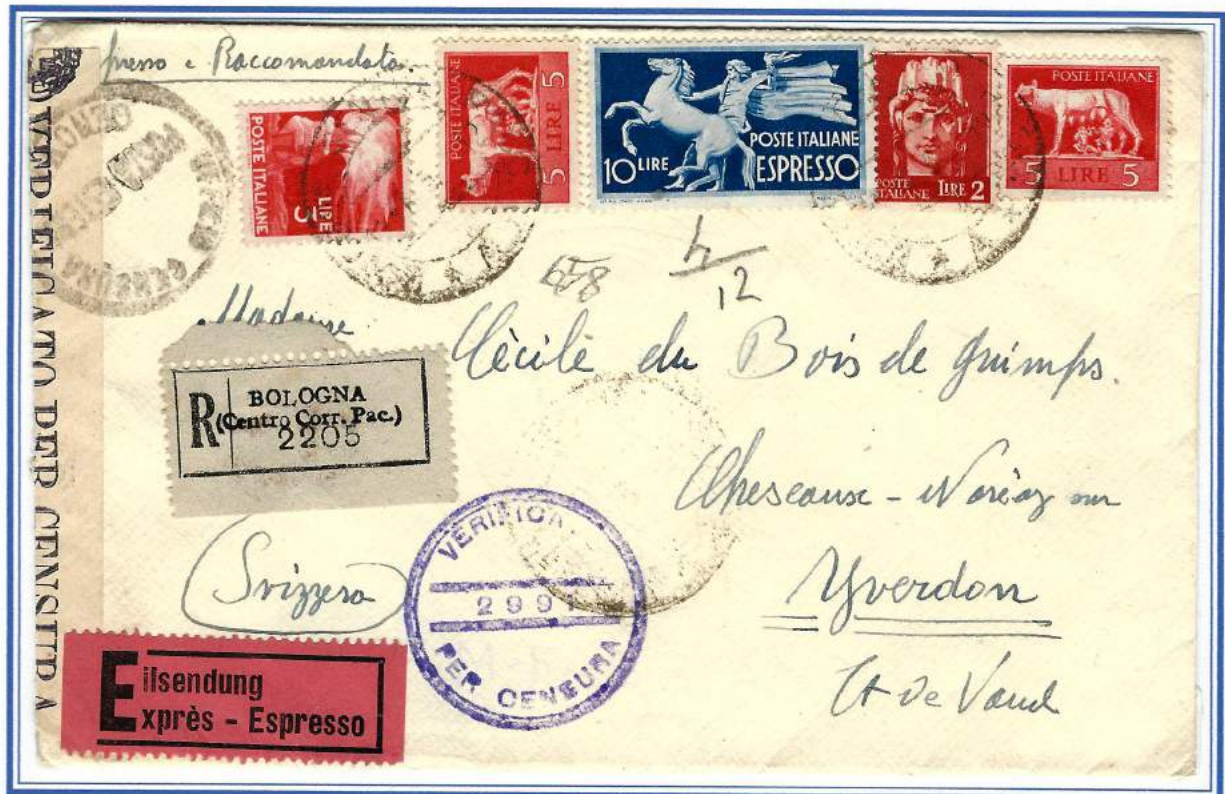 Espresso e Raccomandata.
POSTE ITALIANE
LIRE
3
POSTE ITALIANE
5 LIRE 5
10 LIRE POSTE ITALIANE
ESPRESSO
POSTE
ITALIANE LIRE 2
POSTE ITALIANE
5 LIRE 5
VERIFICATO PER CENSURA
CENSURA
658
12
Madame
Cécile du Bois de Guimps.
R BOLOGNA
(Centro Corr. Pac.)
2205
Cheseaux - Noréaz sur
Yverdon
Ct de Vaud
Svizzera
VERIFICA
299
PER CENSURA
Eilsendung
Exprès - Espresso